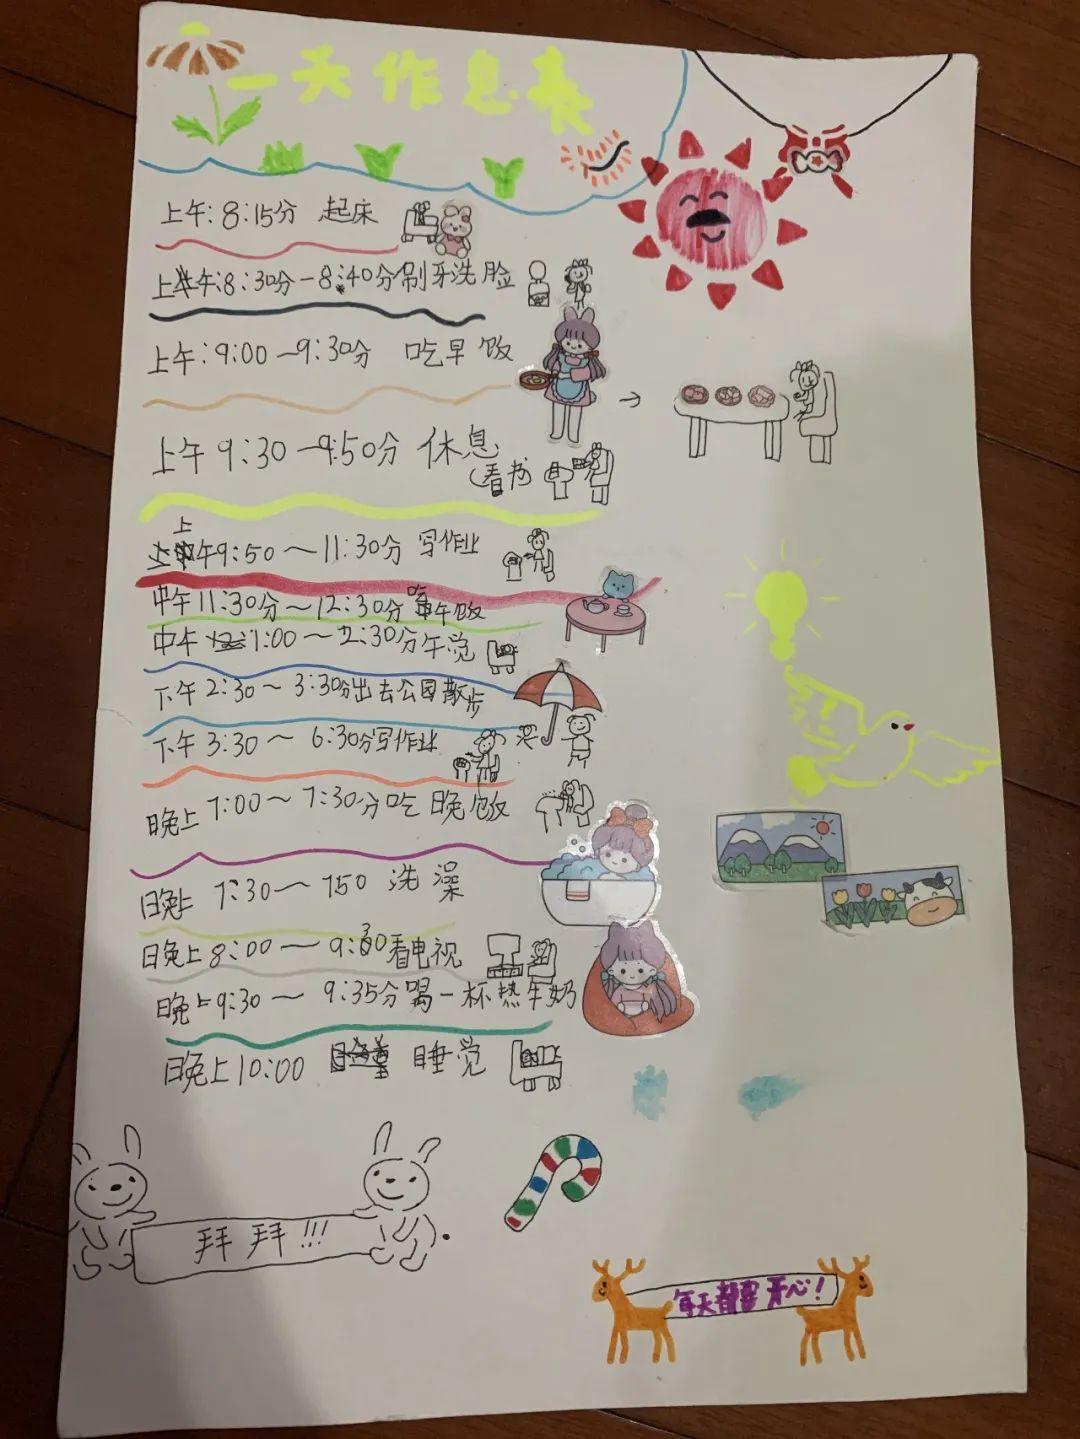 一天作息表
上午:8:15分 起床
上午:8:30分-8:40分刷牙洗脸
上午:9:00-9:30分 吃早饭
上午9:30-9:50分 休息
(看书
上午9:50~11:30分 写作业
中午11:30分~12:30分 吃午饭
中午1:00~2:30分午觉
下午2:30~3:30分出去公园散步
下午3:30~6:30分写作业
晚上7:00~7:30分吃晚饭
晚上 7:30-750 洗澡
晚上8:00-9:30看电视
晚上9:30-9:35分喝一杯热牛奶
晚上10:00 睡觉
拜拜!!!
每天都要开心!